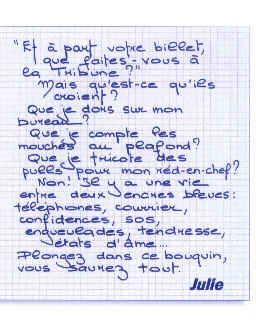 "Et à part votre billet,
que faites-vous à
la Tribune ?"
Mais qu'est-ce qu'ils
croient ?
Que je dors sur mon
bureau ?
Que je compte les
mouches au plafond ?
Que je tricote des
pulls pour mon réd-en-chef ?
Non ! Il y a une vie
entre deux encres bleues :
téléphones, courrier,
confidences, SOS,
engueulades, tendresse,
états d'âme...
Plongez dans ce bouquin,
vous saurez tout.
Julie